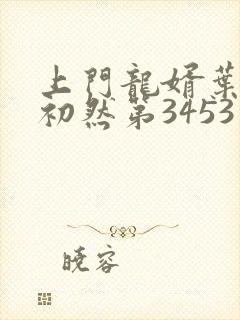 上門龍婿葉
初然第3453
曉容